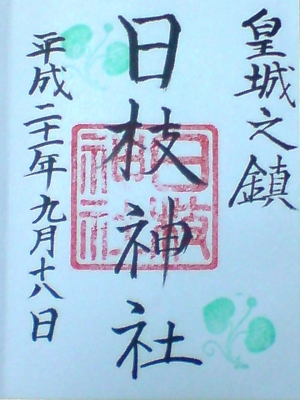 皇城之鎮
日枝神社
日枝神社
平成二十一年九月十八日